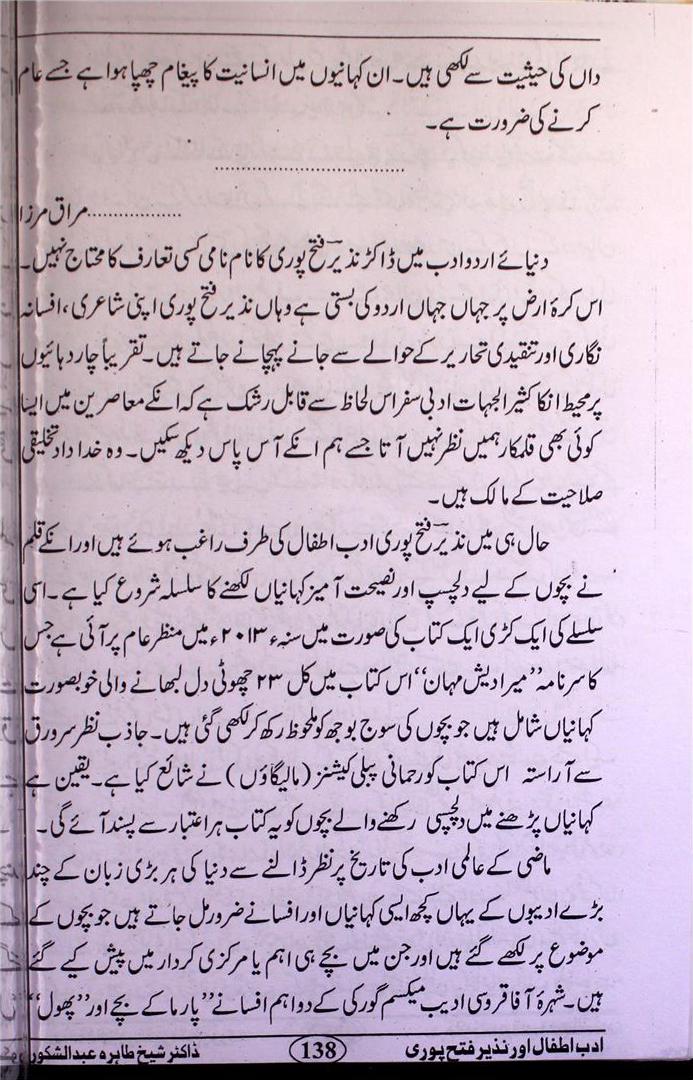 داں کی حیثیت سے لکھی ہیں۔ ان کہانیوں میں انسانیت کا پیغام چھپا ہوا ہے جسے عام
کرنے کی ضرورت ہے۔
................................
................مراق مرزا
دنیائے اردو ادب میں ڈاکٹر نذیرؔ فتح پوری کا نام نامی کسی تعارف کا محتاج نہیں۔
اس کرۂ ارض پر جہاں جہاں اردو کی بستی ہے وہاں نذیر فتح پوری اپنی شاعری، افسانہ
نگاری اور تنقیدی تحاریر کے حوالے سے جانے پہچانے جاتے ہیں۔ تقریباً چار دہائیوں
پر محیط انکا کثیر الجہات ادبی سفر اس لحاظ سے قابل رشک ہے کہ انکے معاصرین میں ایسا
کوئی بھی قلمکار ہمیں نظر نہیں آتا جسے ہم انکے آس پاس دیکھ سکیں۔ وہ خداداد تخلیقی
صلاحیت کے مالک ہیں۔
حال ہی میں نذیرؔ فتح پوری ادب اطفال کی طرف راغب ہوئے ہیں اور انکے قلم
نے بچوں کے لیے دلچسپ اور نصیحت آمیز کہانیاں لکھنے کا سلسلہ شروع کیا ہے۔ اسی
سلسلے کی ایک کڑی ایک کتاب کی صورت میں سنہ ۲۰۱۳ء میں منظر عام پر آئی ہے جس
کا سرنامہ ”میرا دیش مہان“ اس کتاب میں کل ۲۳ چھوٹی دل لبھانے والی خوبصورت
کہانیاں شامل ہیں جو بچوں کی سوج بوجھ کو ملحوظ رکھ کر لکھی گئی ہیں۔ جاذب نظر سرورق
سے آراستہ اس کتاب کو رحمانی پبلی کیشنز (مالیگاؤں) نے شائع کیا ہے۔ یقین ہے
کہانیاں پڑھنے میں دلچسپی رکھنے والے بچوں کو یہ کتاب ہر اعتبار سے پسند آئے گی۔
ماضی کے عالمی ادب کی تاریخ پر نظر ڈالنے سے دنیا کی ہر بڑی زبان کے چند
بڑے ادیبوں کے یہاں کچھ ایسی کہانیاں اور افسانے ضرور مل جاتے ہیں جو بچوں کے
موضوع پر لکھے گئے ہیں اور جن میں بچے ہی اہم یا مرکزی کردار میں پیش کیے گئے
ہیں۔ شہرۂ آفاق روسی ادیب میکسم گورکی کے دو اہم افسانے ”پارما کے بچے اور“ ”پھول“
ادب اطفال اور نذیر فتح پوری 138 ڈاکٹر شیخ طاہرہ عبدالشکور